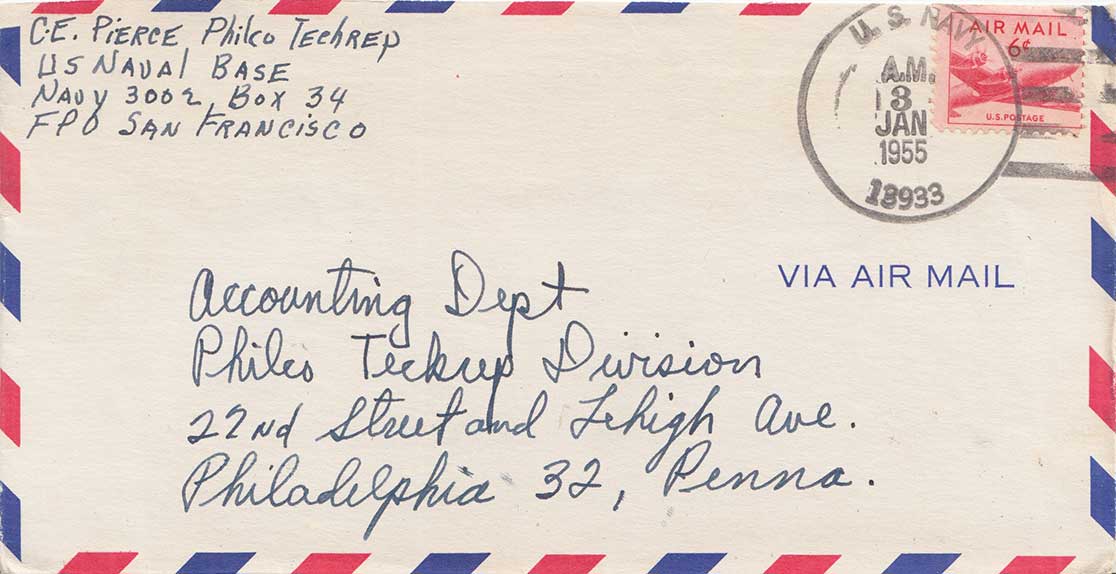 C.E. PIERCE Philco TechRep
US NAVAl BASE
NAVY 3002, BOX 34
FPO SAN FRANCISCO
U.S. NAVY
A.M.
3
JAN
1955
13933
AIR MAIL
6¢
U.S. POSTAGE
VIA AIR MAIL
Accounting Dept
Philco Techrep Division
22nd Street and Lehigh Ave.
Philadelphia 32, Penna.